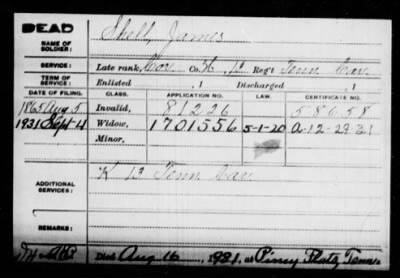 DEAD
NAME OF SOLDIER: Shell, James
SERVICE: Late rank, Co. H, 13 Reg't Tenn. Cav.
TERM OF SERVICE: Enlisted , 1 Discharged , 1
DATE OF FILING. CLASS. APPLICATION NO. LAW. CERTIFICATE NO.
1865 Aug 5 Invalid, 81226 58658
1931 Sept 4 Widow, 1701556 5-1-20 A-12-29-31
Minor,
ADDITIONAL SERVICES: K 13 Tenn Cav
REMARKS:
Died Aug 16, 1931, at Piney Flats, Tenn.